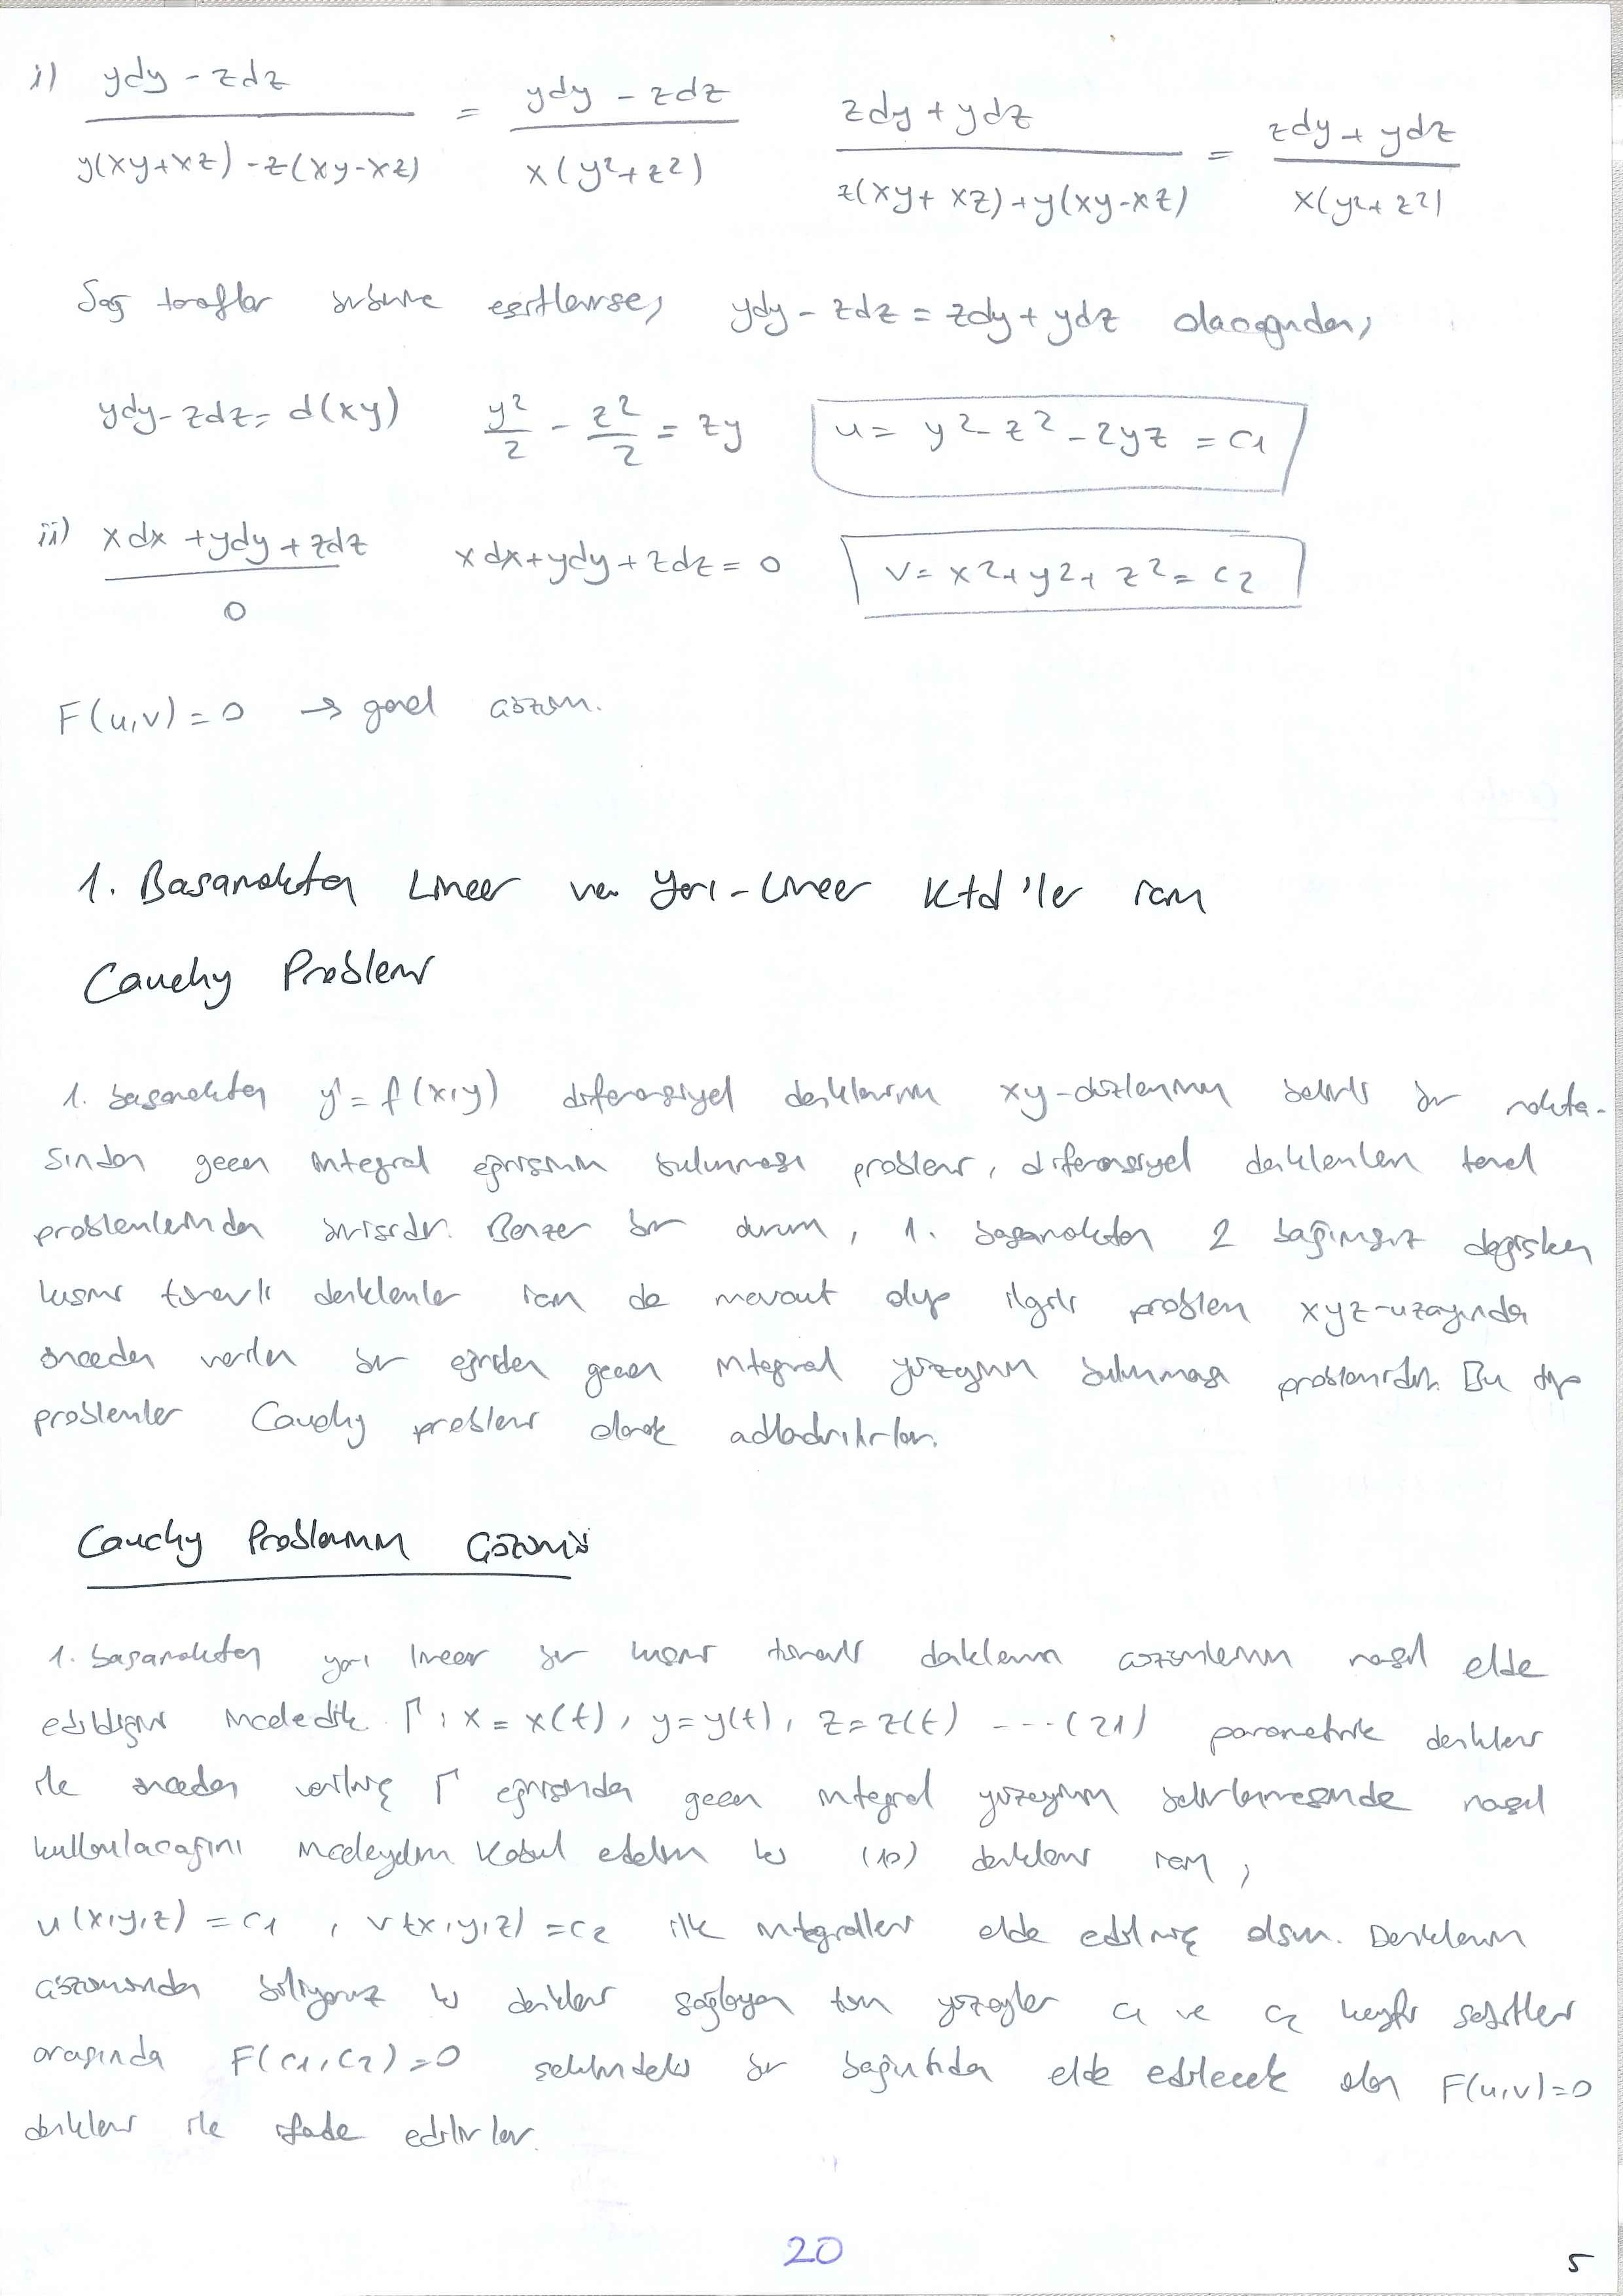 i) (ydy - zdz)/(y(xy+xz) - z(xy-xz)) = (ydy - zdz)/(x(y²+z²))    (zdy + ydz)/(z(xy+xz)+y(xy-xz)) = (zdy + ydz)/(x(y²+z²))
Sağ taraflar birbirine eşitlenirse, ydy - zdz = zdy + ydz olacağından,
ydy - zdz = d(xy)    y²/2 - z²/2 = zy    u = y² - z² - 2yz = c1
ii) (xdx + ydy + zdz)/0    xdx + ydy + zdz = 0    v = x² + y² + z² = c2
F(u,v) = 0 → genel çözüm.
1. Basamaktan Lineer ve Yarı-Lineer Ktd'ler için
Cauchy Problemi
1. basamaktan y' = f(x,y) diferensiyel denkleminin xy-düzleminin belirli bir nokta-
sından geçen integral eğrisinin bulunması problemi, diferensiyel denklemlerin temel
problemlerinden birisidir. Benzer bir durum, 1. basamaktan 2 bağımsız değişken
kısmi türevli denklemler için de mevcut olup ilgili problem xyz-uzayında
önceden verilen bir eğriden geçen integral yüzeyinin bulunması problemidir. Bu tip
problemler Cauchy problemi olarak adlandırılırlar.
Cauchy Probleminin Çözümü
1. basamaktan yarı lineer bir kısmi türevli denklemin çözümlerinin nasıl elde
edildiğini inceledik. Γ: x = x(t), y = y(t), z = z(t) ---(21) parametrik denklemi
ile önceden verilmiş Γ eğrisinden geçen integral yüzeyinin belirlenmesinde nasıl
kullanılacağını inceleyelim. Kabul edelim ki (10) denklemi için,
u(x,y,z) = c1, v(x,y,z) = c2 ilk integralleri elde edilmiş olsun. Denklemin
çözümünden biliyoruz ki denklemi sağlayan tüm yüzeyler c1 ve c2 keyfi sabitleri
arasında F(c1,c2) = 0 şeklindeki bir bağıntıdan elde edilecek olan F(u,v)=0
denklemi ile ifade edilirler.
20
5